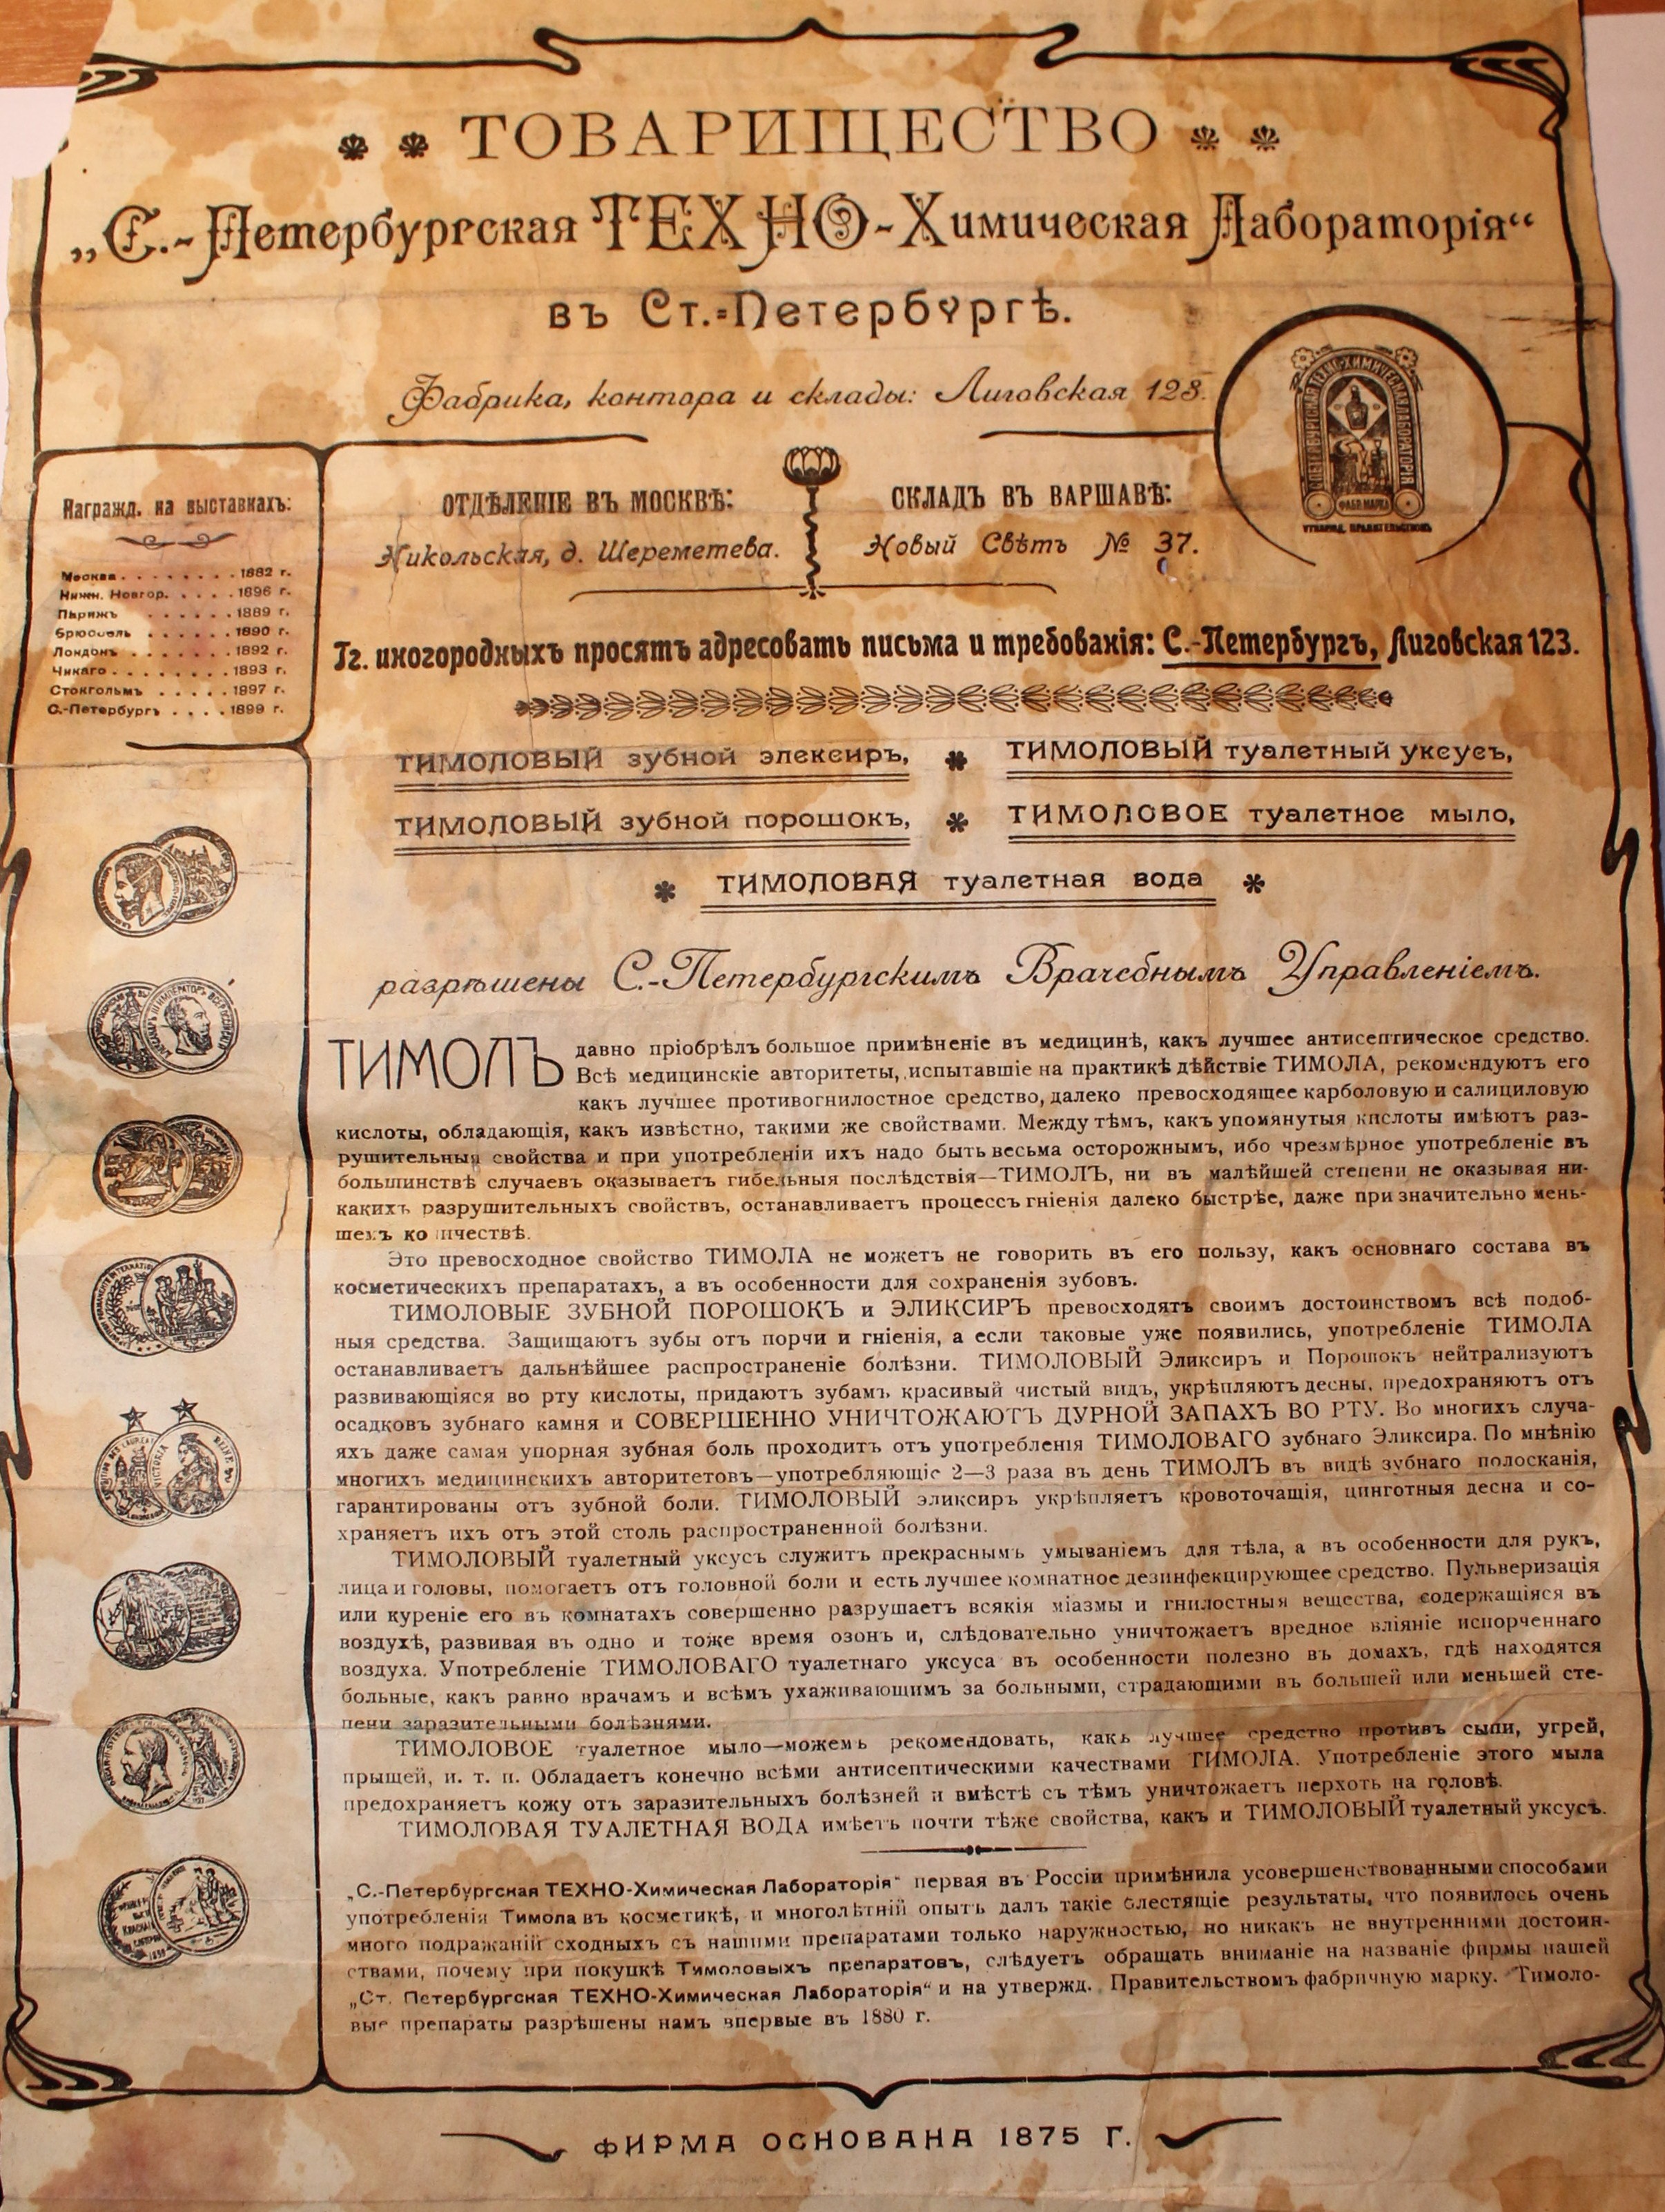 ТОВАРИЩЕСТВО
„С.-Петербургская ТЕХНО-Химическая Лабораторія“
въ Ст.-Петербургѣ.
Фабрика, контора и склады: Лиговская 123.
С.ПЕТЕРБУРГСКАЯ ТЕХНО-ХИМИЧЕСКАЯ ЛАБОРАТОРІЯ
ФАБР. МАРКА
УТВЕРЖД. ПРАВИТЕЛЬСТВОМЪ
Награжд. на выставкахъ:
Москва . . . . . . . . 1882 г.
Нижн. Новгор. . . . . 1896 г.
Парижъ . . . . . . 1889 г.
Брюссель . . . . . . 1890 г.
Лондонъ . . . . . . . 1892 г.
Чикаго . . . . . . . . 1893 г.
Стокгольмъ . . . . . 1897 г.
С.-Петербургъ . . . . 1899 г.
ОТДѢЛЕНІЕ ВЪ МОСКВѢ:
Никольская, д. Шереметева.
СКЛАДЪ ВЪ ВАРШАВѢ:
Новый Свѣтъ № 37.
Гг. иногородныхъ просятъ адресовать письма и требованія: С.-Петербургъ, Лиговская 123.
ТИМОЛОВЫЙ зубной элексиръ, * ТИМОЛОВЫЙ туалетный уксусъ,
ТИМОЛОВЫЙ зубной порошокъ, * ТИМОЛОВОЕ туалетное мыло,
* ТИМОЛОВАЯ туалетная вода *
разрѣшены С.-Петербургскимъ Врачебнымъ Управленіемъ.
ТИМОЛЪ давно пріобрѣлъ большое примѣненіе въ медицинѣ, какъ лучшее антисептическое средство.
Всѣ медицинскіе авторитеты, испытавшіе на практикѣ дѣйствіе ТИМОЛА, рекомендуютъ его
какъ лучшее противогнилостное средство, далеко превосходящее карболовую и салициловую
кислоты, обладающія, какъ извѣстно, такими же свойствами. Между тѣмъ, какъ упомянутыя кислоты имѣютъ раз-
рушительныя свойства и при употребленіи ихъ надо быть весьма осторожнымъ, ибо чрезмѣрное употребленіе въ
большинствѣ случаевъ оказываетъ гибельныя послѣдствія—ТИМОЛЪ, ни въ малѣйшей степени не оказывая ни-
какихъ разрушительныхъ свойствъ, останавливаетъ процессъ гніенія далеко быстрѣе, даже при значительно мень-
шемъ количествѣ.
Это превосходное свойство ТИМОЛА не можетъ не говорить въ его пользу, какъ основнаго состава въ
косметическихъ препаратахъ, а въ особенности для сохраненія зубовъ.
ТИМОЛОВЫЕ ЗУБНОЙ ПОРОШОКЪ и ЭЛИКСИРЪ превосходятъ своимъ достоинствомъ всѣ подоб-
ныя средства. Защищаютъ зубы отъ порчи и гніенія, а если таковые уже появились, употребленіе ТИМОЛА
останавливаетъ дальнѣйшее распространеніе болѣзни. ТИМОЛОВЫЙ Эликсиръ и Порошокъ нейтрализуютъ
развивающіяся во рту кислоты, придаютъ зубамъ красивый чистый видъ, укрѣпляютъ десны, предохраняютъ отъ
осадковъ зубнаго камня и СОВЕРШЕННО УНИЧТОЖАЮТЪ ДУРНОЙ ЗАПАХЪ ВО РТУ. Во многихъ случа-
яхъ даже самая упорная зубная боль проходитъ отъ употребленія ТИМОЛОВАГО зубнаго Эликсира. По мнѣнію
многихъ медицинскихъ авторитетовъ—употребляющіе 2—3 раза въ день ТИМОЛЪ въ видѣ зубнаго полосканія,
гарантированы отъ зубной боли. ТИМОЛОВЫЙ эликсиръ укрѣпляетъ кровоточащія, цинготныя десна и со-
храняетъ ихъ отъ этой столь распространенной болѣзни.
ТИМОЛОВЫЙ туалетный уксусъ служитъ прекраснымъ умываніемъ для тѣла, а въ особенности для рукъ,
лица и головы, помогаетъ отъ головной боли и есть лучшее комнатное дезинфекцирующее средство. Пульверизація
или куреніе его въ комнатахъ совершенно разрушаетъ всякія міазмы и гнилостныя вещества, содержащіяся въ
воздухѣ, развивая въ одно и тоже время озонъ и, слѣдовательно уничтожаетъ вредное вліяніе испорченнаго
воздуха. Употребленіе ТИМОЛОВАГО туалетнаго уксуса въ особенности полезно въ домахъ, гдѣ находятся
больные, какъ равно врачамъ и всѣмъ ухаживающимъ за больными, страдающими въ большей или меньшей сте-
пени заразительными болѣзнями.
ТИМОЛОВОЕ туалетное мыло—можемъ рекомендовать, какъ лучшее средство противъ сыпи, угрей,
прыщей, и. т. п. Обладаетъ конечно всѣми антисептическими качествами ТИМОЛА. Употребленіе этого мыла
предохраняетъ кожу отъ заразительныхъ болѣзней и вмѣстѣ съ тѣмъ уничтожаетъ перхоть на головѣ.
ТИМОЛОВАЯ ТУАЛЕТНАЯ ВОДА имѣетъ почти тѣже свойства, какъ и ТИМОЛОВЫЙ туалетный уксусъ.
„С.-Петербургская ТЕХНО-Химическая Лабораторія“ первая въ Россіи примѣнила усовершенствованными способами
употребленія Тимола въ косметикѣ, и многолѣтній опытъ далъ такіе блестящіе результаты, что появилось очень
много подражаній сходныхъ съ нашими препаратами только наружностью, но никакъ не внутренними достоин-
ствами, почему при покупкѣ Тимоловыхъ препаратовъ, слѣдуетъ обращать вниманіе на названіе фирмы нашей
„Ст. Петербургская ТЕХНО-Химическая Лабораторія“ и на утвержд. Правительствомъ фабричную марку. Тимоло-
вые препараты разрѣшены намъ впервые въ 1880 г.
ФИРМА ОСНОВАНА 1875 Г.